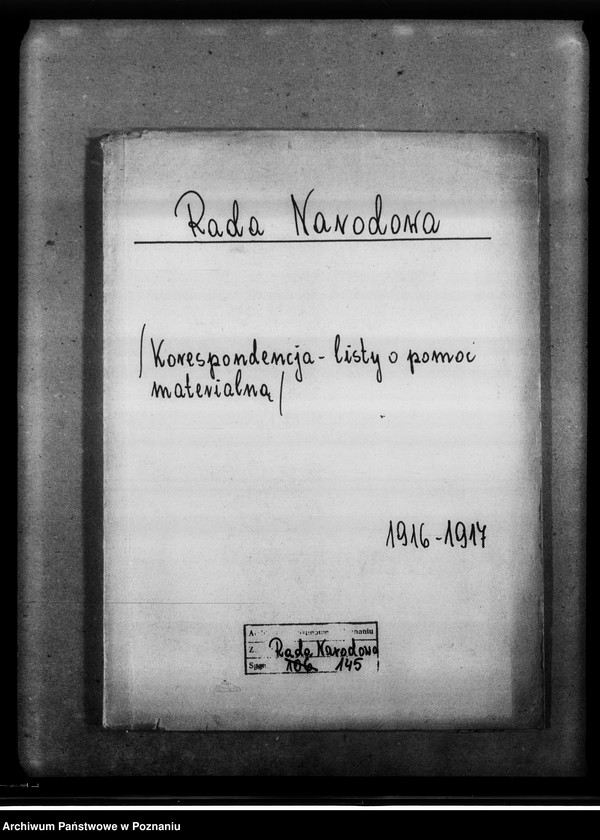 Rada Narodowa
/Korespondencja - listy o pomoc
materialną/
1916-1917
Z. Rada Narodowa
Sygn. 145
Archiwum Państwowe w Poznaniu